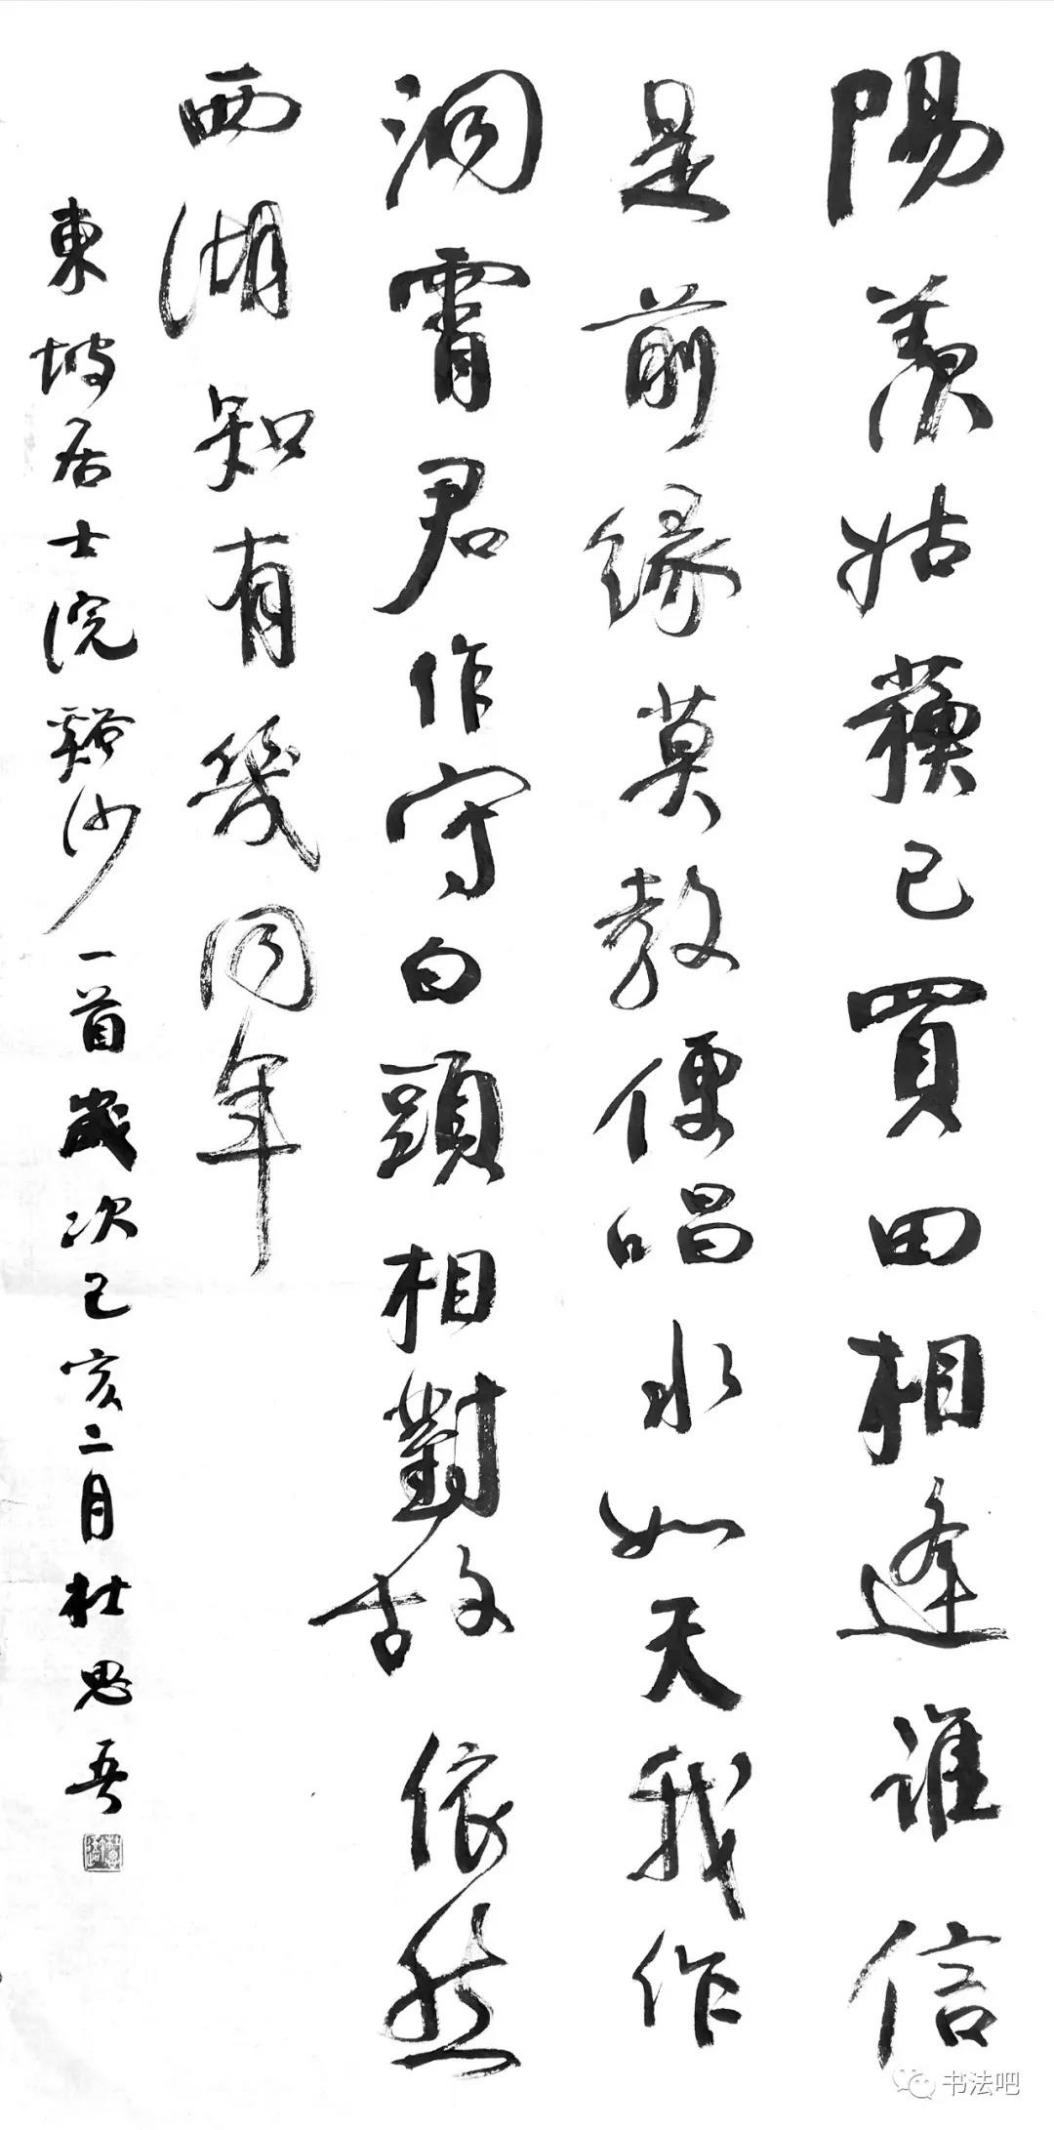 陽羨姑蘇已買田相逢誰信
是前緣莫教便唱水如天我作
洞霄君作守白頭相對故依然
西湖知有幾同年
東坡居士浣谿沙一首歲次己亥二月杜思吾
书法吧